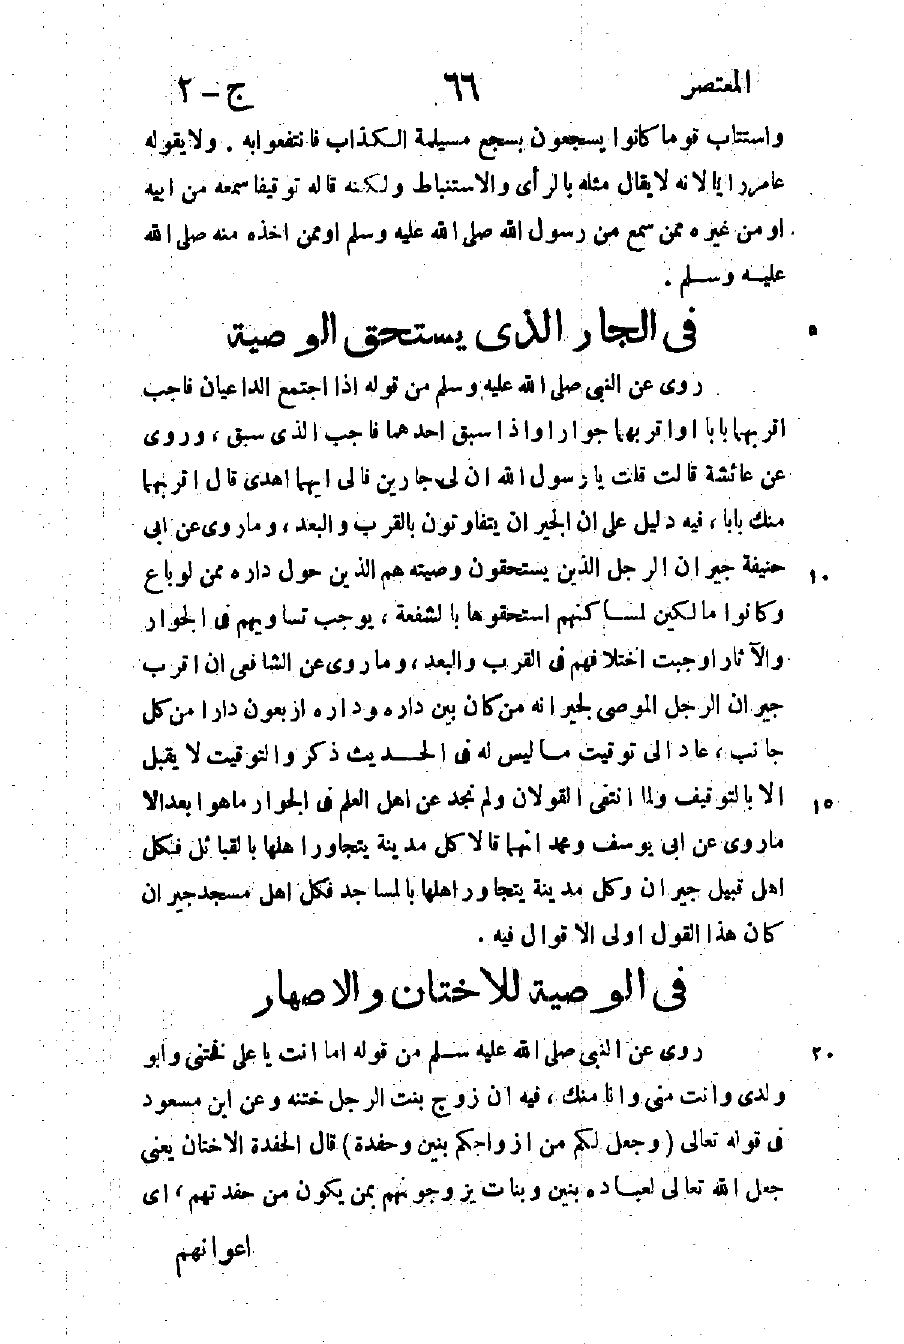 المعتصر ٦٦ ج – ٢
واستتاب قوما كانوا يسجعون بسجع مسيلمة الكذاب فانتفعوا به . ولا يقوله
عامر رايا لانه لا يقال مثله بالرأى والاستنباط ولكنه قاله توقيفا سمعه من ابيه
او من غيره ممن سمع من رسول الله صلى الله عليه وسلم او ممن اخذه منه صلى الله
عليه وسلم .
فى الجار الذى يستحق الوصية ٥
روى عن النبى صلى الله عليه وسلم من قوله اذا اجتمع الداعيان فاجب
اقربهما بابا او اقربهما جوارا واذا سبق احدهما فاجب الذى سبق ، وروى
عن عائشة قالت قلت يا رسول الله ان لى جارين فالى ايهما اهدى قال اقربهما
منك بابا ، فيه دليل على ان الجيران يتفاوتون بالقرب والبعد ، وما روى عن ابى
حنيفة جيران الرجل الذين يستحقون وصيته هم الذين حول داره ممن لو باع ١٠
وكانوا مالكين لمساكنهم استحقوها بالشفعة ، يوجب تساويهم فى الجوار
والآثار اوجبت اختلافهم فى القرب والبعد ، وما روى عن الشافعى ان اقرب
جيران الرجل الموصى لجيرانه من كان بين داره وداره اربعون دارا من كل
جانب ، عاد الى توقيت ما ليس له فى الحديث ذكر والتوقيت لا يقبل
الا بالتوقيف ولما انتفى القولان ولم نجد عن اهل العلم فى الجوار ما هو ابعد الا ١٥
ما روى عن ابى يوسف ومحمد انهما قالا كل مدينة يتجاور اهلها بالقبائل فكل
اهل قبيل جيران وكل مدينة يتجاور اهلها بالمساجد فكل اهل مسجد جيران
كان هذا القول اولى الاقوال فيه .
فى الوصية للاختان والاصهار
روى عن النبى صلى الله عليه وسلم من قوله اما انت يا على فختنى وأبو ٢٠
ولدى وانت منى وانا منك ، فيه ان زوج بنت الرجل ختنه وعن ابن مسعود
فى قوله تعالى (وجعل لكم من ازواجكم بنين وحفدة) قال الحفدة الاختان يعنى
جعل الله تعالى لعباده بنين وبنات يزوجونهم بمن يكون من حفدتهم ، اى
اعوانهم